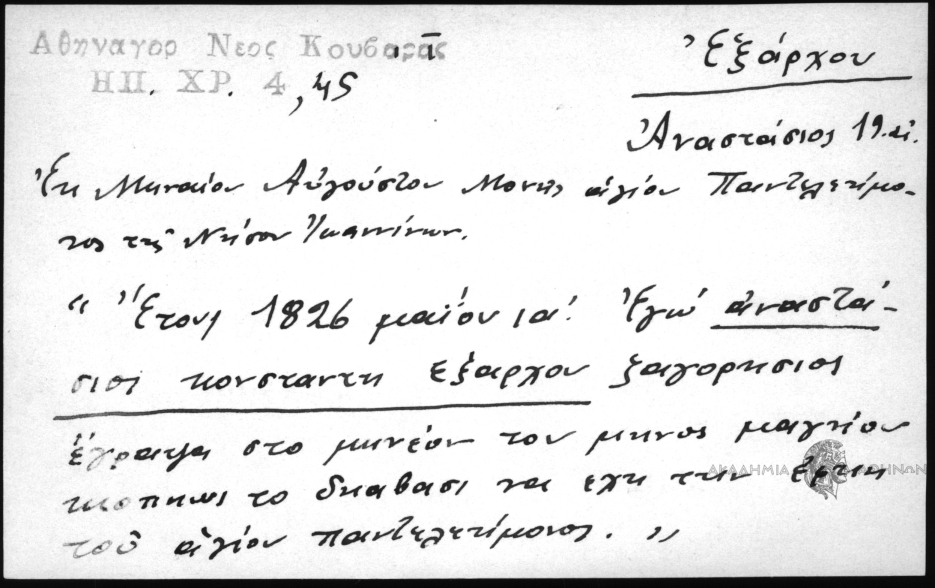 Ἀθηναγορ Νεος Κουβαρᾶς
ΗΠ. ΧΡ. 4, 45
Ἐξάρχου
Ἀναστάσιος 19. αἰ.
Ἐκ Μηναίου Αὐγούστου Μονῆς ἁγίου Παντελεήμο-
νος τῆς Νήσου Ἰωαννίνων.
“ Ἔτους 1826 μαΐου ια΄. Ἐγώ ἀναστά-
σιος κονσταντη ἐξάρχου ξαγορησιος
ἔγραψα στο μηνέον του μηνος μαγηου
κιοπηως το δηαβασι να εχη την ἐφχη
τοῦ ἁγίου παντελεήμονος. „
ΑΚΑΔΗΜΙΑ ΑΘΗΝΩΝ